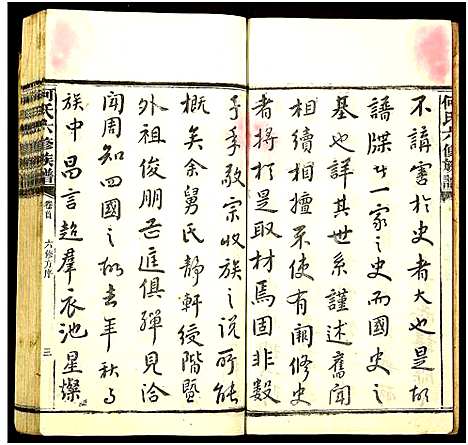 何氏六修族譜
不講害於史者大也是故
譜牒廿一家之史而國史之
基也詳其世系謹述舊聞
相續相擅系使有閑修史
者將於是取材焉固非數
子季敬宗收族之說所能
概矣余舅氏靜軒綬階暨
外祖俊朋芒匡俱殫見洽
聞周知四國之故去年秋
族中昌言起羣衣池星燦
何氏六修族譜
卷首
六修方序
三